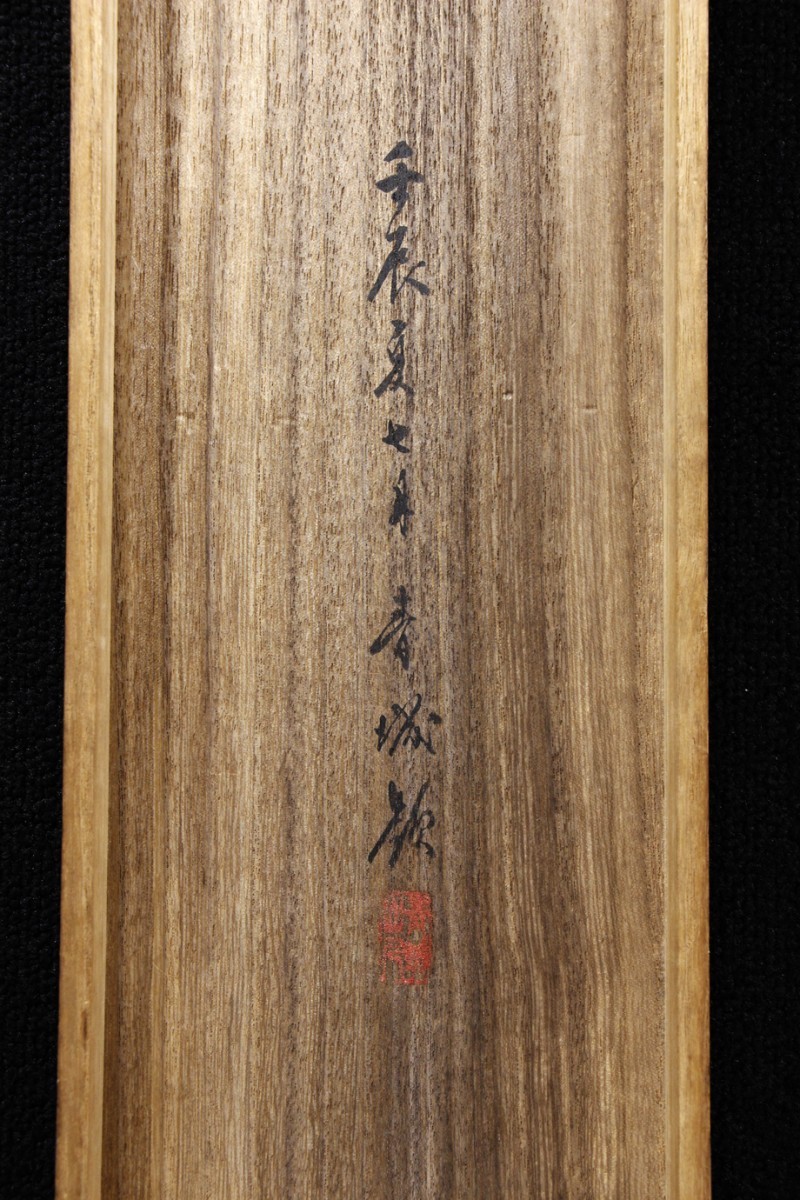 壬辰夏七月 青城題